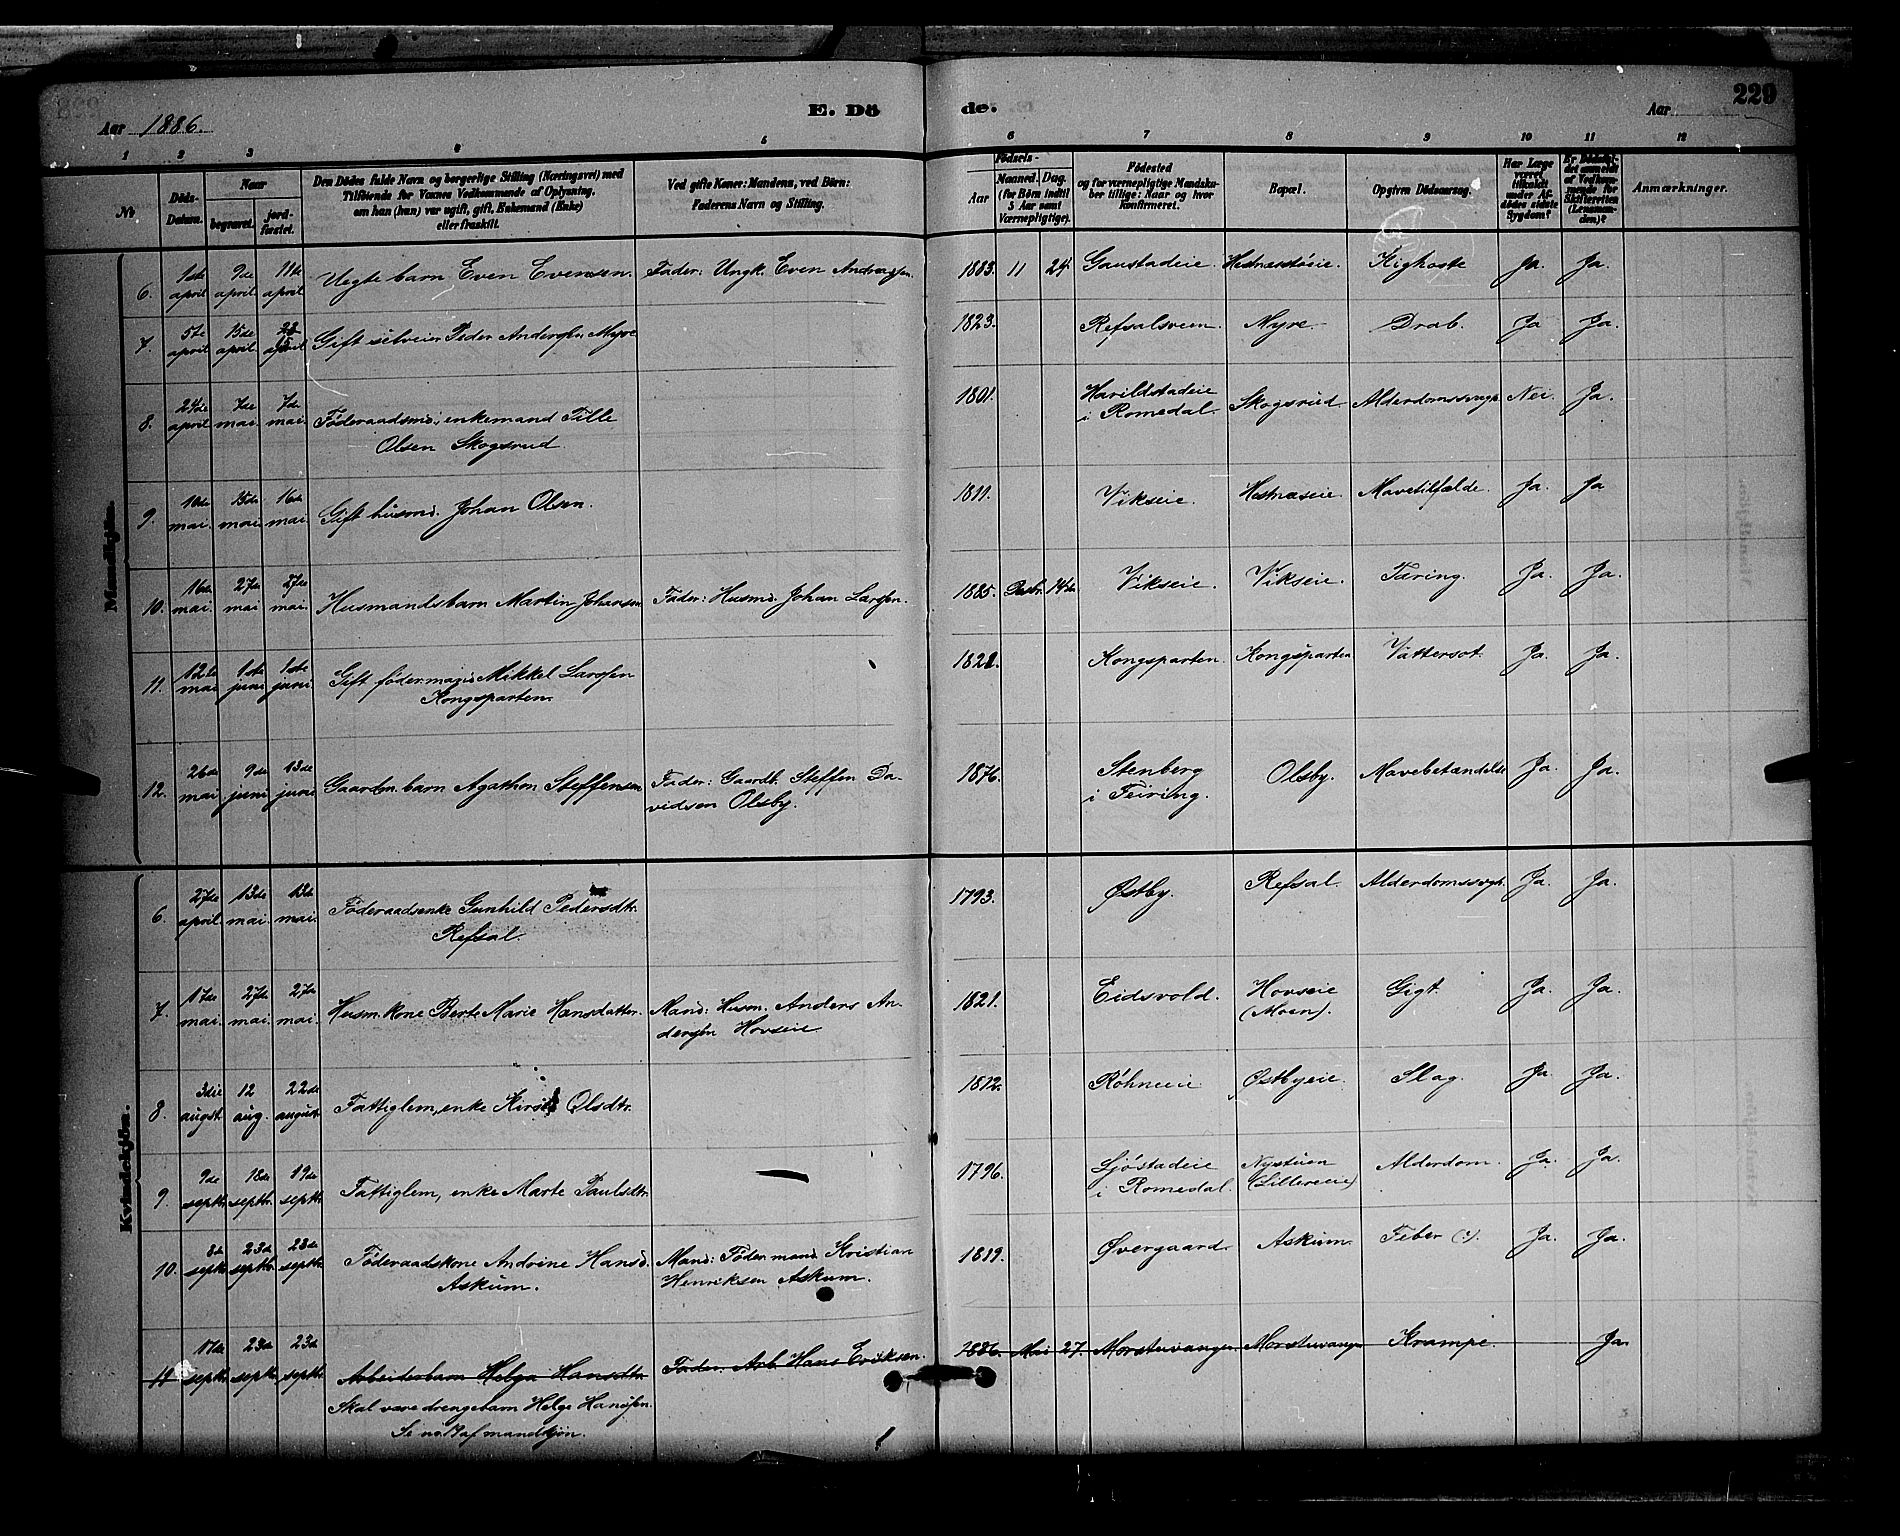 Aar 1886. E. Dö de. Aar 229
1 2 3 4 5 6 7 8 9 10 11 12
No
Døds-Datum.
Naar
begravet.
jord-fæstet.
Den Dödes fulde Navn og borgerlige Stilling (Næringsvei) med
Tilföiende for Voxnes Vedkommende af Oplysning,
om han (hun) var ugift, gift, Enkemand (Enke)
eller fraskilt.
Ved gifte Koner: Mandens, ved Börn:
Faderens Navn og Stilling.
Födsels-
Aar
Maaned. Dag.
(for Börn indtil
5 Aar samt
Værnepligtige).
Födested
og for værnepligtige Mandska-
ber tillige: Naar og hvor
konfirmeret.
Bopæl.
Opgiven Dödsaarsag.
Har Læge
været
tilkaldt
under Af-
dödes sidste
Sygdom?
Er Dödsfal-
det anmeldt
af Vedkom-
mende for
Skifteretten
(Lensman-
den)?
Anmærkninger.
Mandkjön.
6. 1ste april 9de april 11te april Uegte barn Even Evensen. Fader: Ungk. Even Andersen. 1883. 11 24. Gaustadeie. Kighoste Ja. Ja.
7. 5te april 15de april april Gift selveier Peder Andersen Myre 1823. Refsalsveen. Myre. Drab. Ja Ja.
8. 24de april 7de mai. 7de mai. Föderaadsmd., enkemand Tille
Olsen Skogsrud 1801. Harildstadeie
i Romedal. Skogsrud Alderdomssvagh. Nei. Ja.
9. 10de mai. 15de mai. 16de mai. Gift husmd. Johan Olsen. 1811. Vikseie. Hestnæseie. Mavetilfælde. Ja. Ja
10. 16de mai. 27de mai 27de mai. Husmandsbarn Martin Johansen Fader: Husmd. Johan Larsen. 1885. Decbr. 14de Vikseie. Vikseie. Tæring. Ja. Ja.
11. 12te mai 1ste juni 1ste juni. Gift födermand Mikkel Larsen
Kongsparten. 1822. Kongsparten. Kongsparten Vattersot. Ja. Ja.
12. 26de mai 9de juni 13de juni Gaardm. barn Agathon Steffensen Fader: Gaardb. Steffen Da-
vidsen Olsby. 1876. Stenberg
i Feiring. Olsby. Mavebetændelse Ja. Ja.
Kvindekjön.
6. 27de april 13de mai. 13de mai. Föderaadsenke Gunhild Pedersdtr.
Refsal. 1793. Østby. Refsal. Alderdomssvagh. Ja. Ja.
7. 17de mai. 27de mai. 27de mai. Husm. kone Berte Marie Hansdatter. Mand: Husm. Anders An-
dersen Hovseie 1821. Eidsvold. Hovseie
(Moen). Gigt. Ja. Ja.
8. 3die augst. 12 aug. 22de august Fattiglem, enke Kirsti Olsdtr. 1812. Röhneeie Østbyeie. Slag. Ja. Ja.
9. 9de septbr. 18de septbr. 19de septbr Fattiglem, enke Marte Paulsdtr. 1796. Ljöstadeie
i Romedal. Nystuen
(Lillereeie) Alderdom. Ja. Ja.
10. 8de septbr 23de septbr 23de septbr Föderaadskone Andrine Hansd.
Askum. Mand: Födermand Kristian
Henriksen Askum. 1819. Övergaard. Askum. Feber (?). Ja. Ja.
11 17de septbr. 23de septbr. 23de septbr Arbeiderbarn Helga Hansdtr Fader: Arb. Hans Eriksen. 1886. Mai 27. Morstuvangen. Morstuvangen Krampe. Ja.
Skal være drengebarn Helge Hansen.
Se no. af mandkjön.